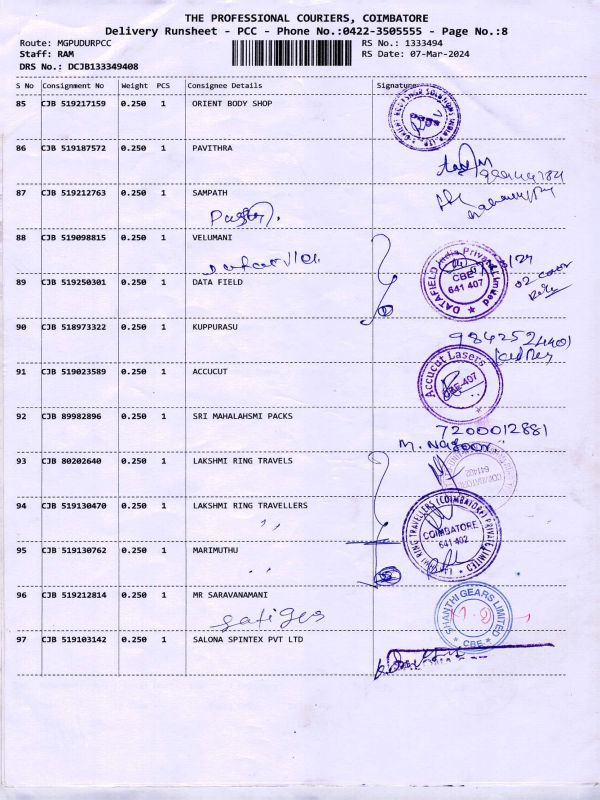 THE PROFESSIONAL COURIERS, COIMBATORE
Delivery Runsheet - PCC - Phone No.:0422-3505555 - Page No.:8
Route: MGPUDURPCC RS No.: 1333494
Staff: RAM RS Date: 07-Mar-2024
DRS No.: DCJB133349408
S No Consignment No Weight PCS Consignee Details Signature
85 CJB 519217159 0.250 1 ORIENT BODY SHOP
86 CJB 519187572 0.250 1 PAVITHRA
87 CJB 519212763 0.250 1 SAMPATH
88 CJB 519098815 0.250 1 VELUMANI
89 CJB 519250301 0.250 1 DATA FIELD
DATAFIELD India Private Limited
CBE
641 407
90 CJB 518973322 0.250 1 KUPPURASU
91 CJB 519023589 0.250 1 ACCUCUT
Accucut Lasers
CBE-407
92 CJB 89982896 0.250 1 SRI MAHALAHSMI PACKS
7200012881
93 CJB 80202640 0.250 1 LAKSHMI RING TRAVELS
94 CJB 519130470 0.250 1 LAKSHMI RING TRAVELLERS
RING TRAVELLERS (COIMBATORE) PRIVATE LIMITED
COIMBATORE
641 402
95 CJB 519130762 0.250 1 MARIMUTHU
96 CJB 519212814 0.250 1 MR SARAVANAMANI
SHANTHI GEARS LIMITED
CBE
97 CJB 519103142 0.250 1 SALONA SPINTEX PVT LTD